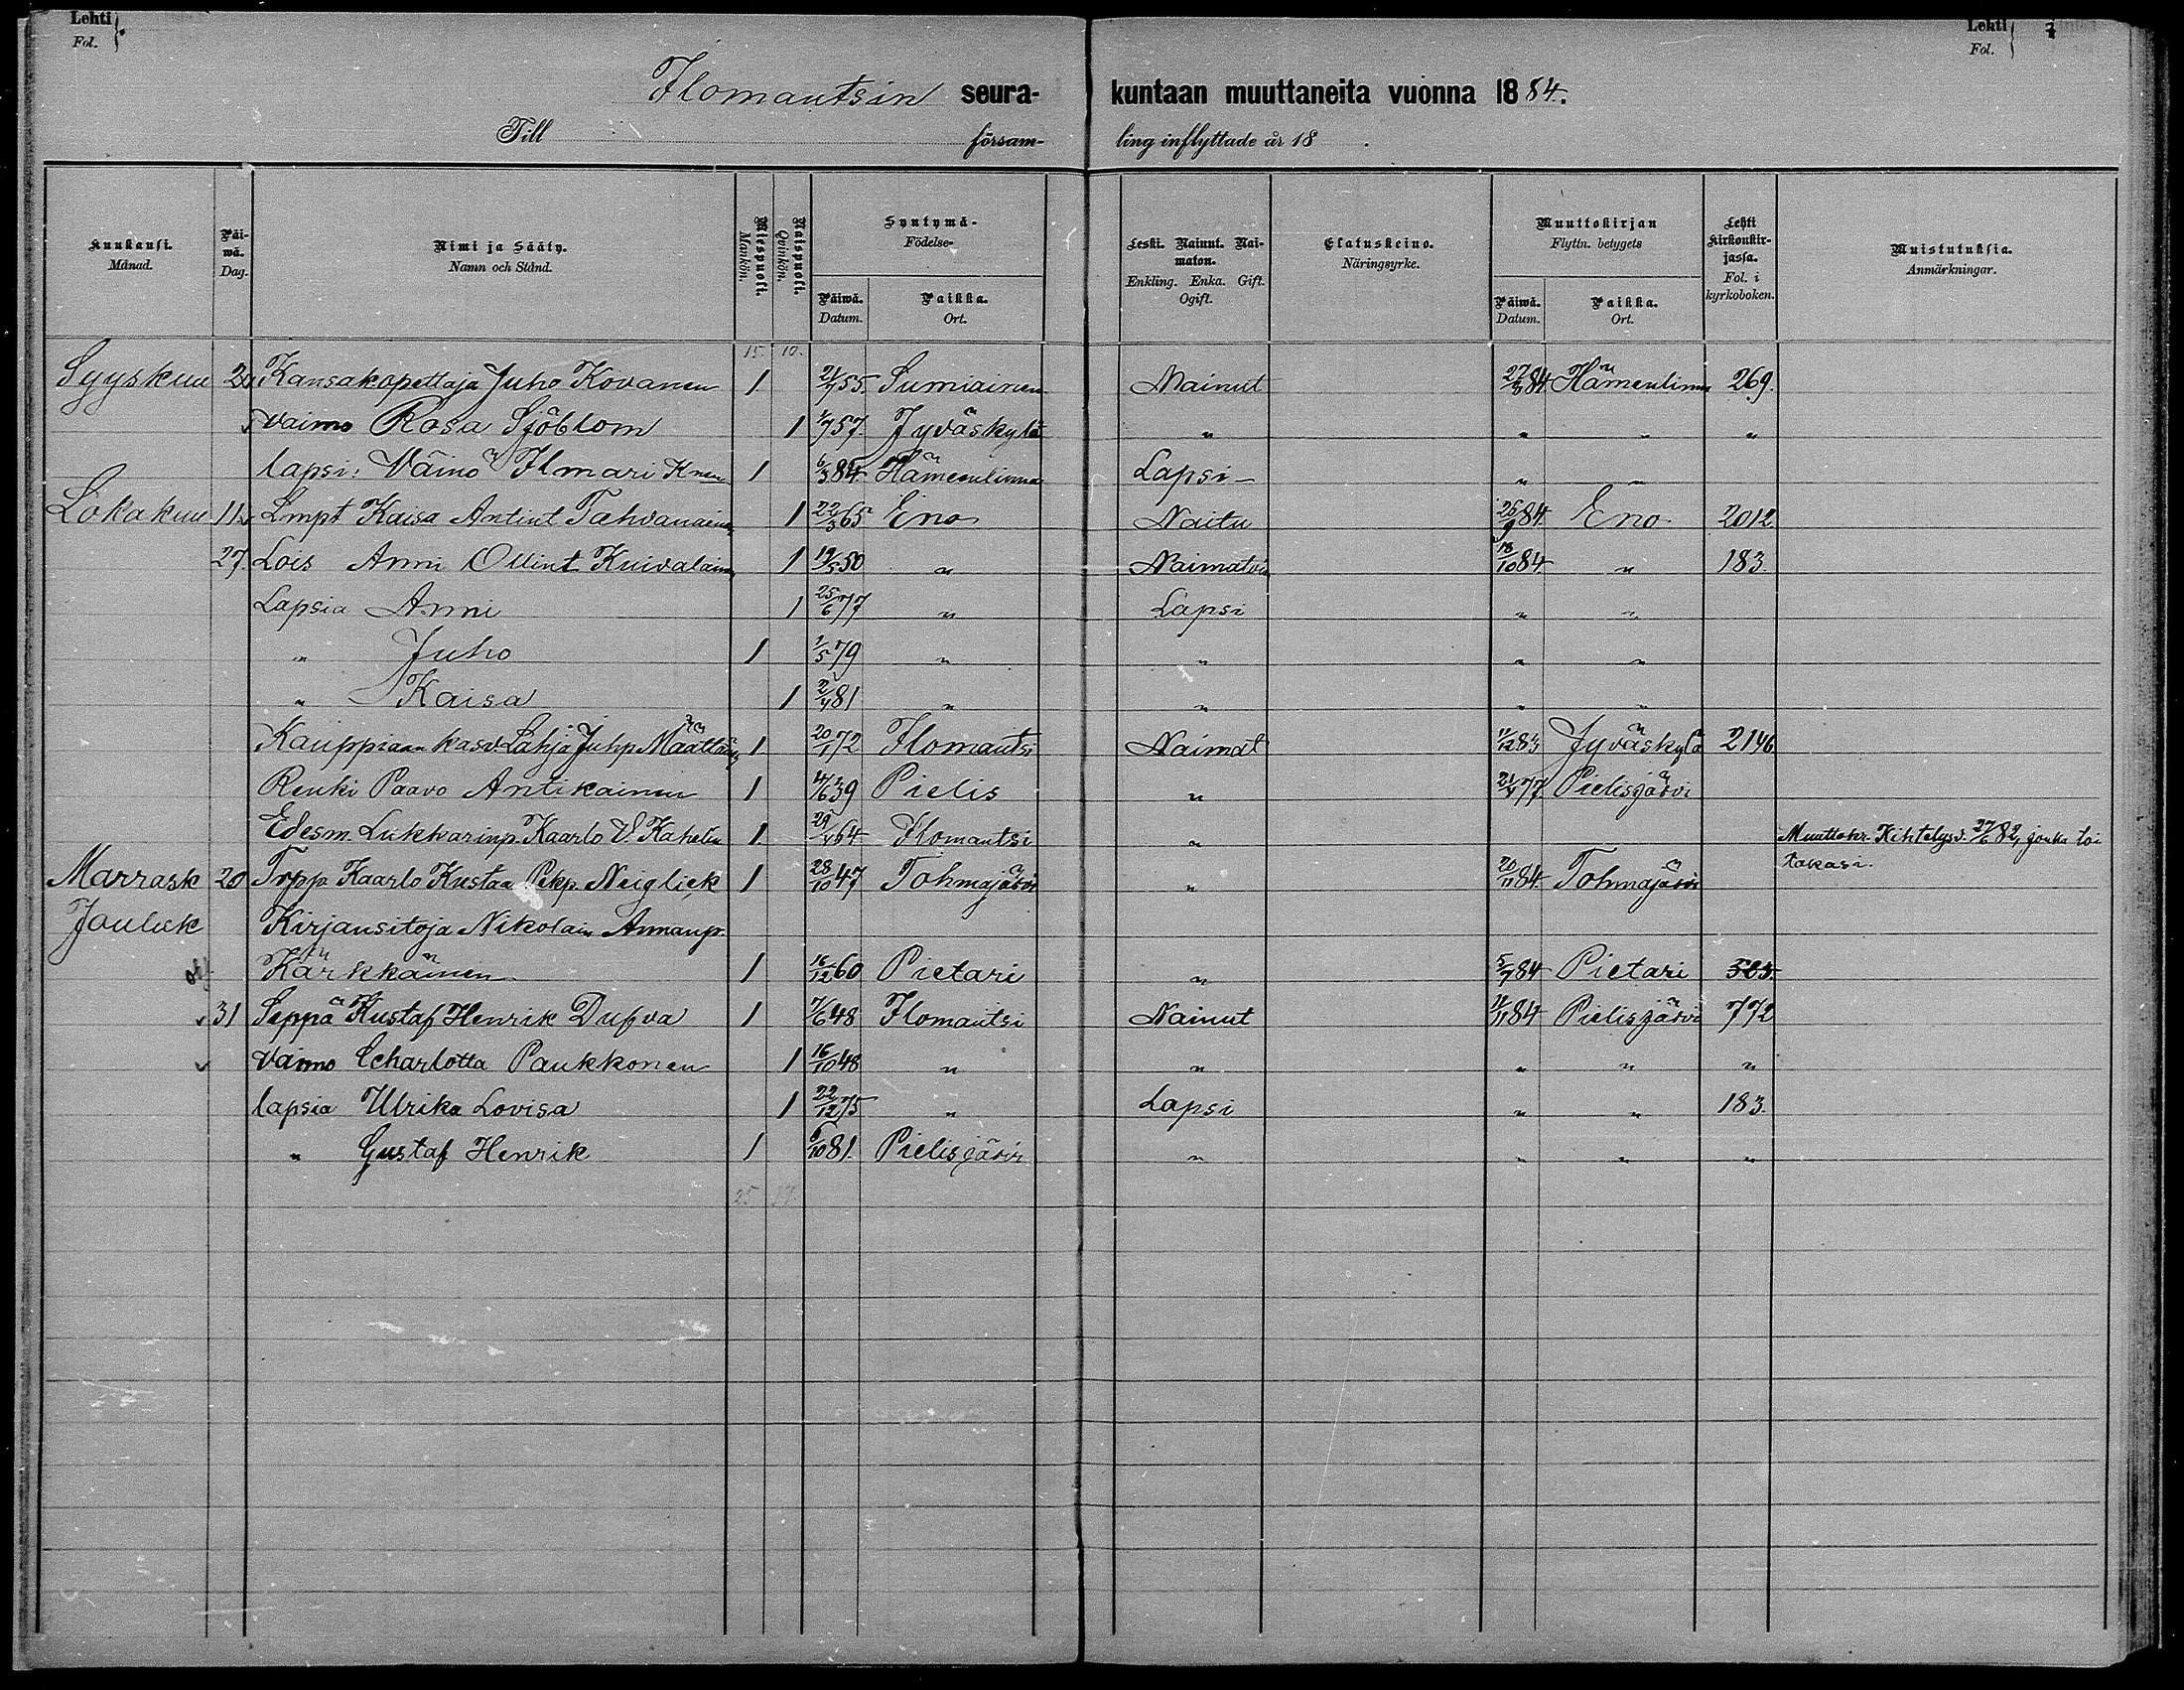 Lehti Fol. } Lehti Fol. } 7
Ilomantsin seura- kuntaan muuttaneita vuonna 1884.
Till försam- ling inflyttade år 18 .
Kuukausi. Månad. Päi-wä. Dag. Nimi ja Sääty. Namn och Stånd. Miespuoli. Mankön. Naispuoli. Qvinkön. Syntymä- Födelse- Päiwä. Datum. Paikka. Ort. Leski. Nainut. Nai-maton. Enkling. Enka. Gift. Ogift. Elatuskeino. Näringsyrke. Muuttokirjan Flyttn. betygets Päiwä. Datum. Paikka. Ort. Lehti kirkonkir-jassa. Fol. i kyrkoboken. Muistutuksia. Anmärkningar.
15. 10.
Syyskuu 20 Kansakopettaja Juho Kovanen 1. 55. Sumiainen Nainut 84 Hämeenlinna 269.
Vaimo Rosa Sjöblom 1 57. Jyväskylä " " " "
lapsi: Väinö Ilmari Knen 1 6/3 84 Hämeenlinna Lapsi - " "
Lokakuu 11 Lmpt Kaisa Antint Tahvanainen 1 22/3 65 Eno Naitu 26/9 84. Eno 2012
27. Lois Anni Ollint Kuivalainen 1 19/5 50 " 18/10 84. " 183.
Lapsia Anni 1 25/6 77 " Lapsi " "
" Juho 1 1/5 79 " " " "
" Kaisa 1 81 " " " "
Kauppiaan kasv. Lahja Juhp. Määttänen 1 20/1 72 Ilomantsi Naimat 83 Jyväskylä 2146
Renki Paavo Antikainen 1 39 Pielis " 77. Pielisjärvi
Edesm. Lukkarinp. Kaarlo V. Kahelin 1. 64 Ilomantsi " Muuttokr. Kihtelysv. 82, jonka toi
takasi.
Marrask 20 Trpp Kaarlo Kustaa Pekp. Neiglick 1 28/10 47 Tohmajärvi " 20/11 84. Tohmajärvi
Jouluk Kirjansitoja Nikolain Annanp.
Kärkkäinen 1 16/12 60 Pietari " 5/7 84 Pietari
31 Seppä Kustaf Henrik Dufva 1 7/6 48 Ilomantsi Nainut 84 Pielisjärvi 772
Vaimo Charlotta Paukkonen 1 16/10 48 " " " " "
lapsia Ulrika Lovisa 1 22/12 75 " Lapsi " " 183.
" Gustaf Henrik 1 81. Pielisjärvi " " " "
25 17.